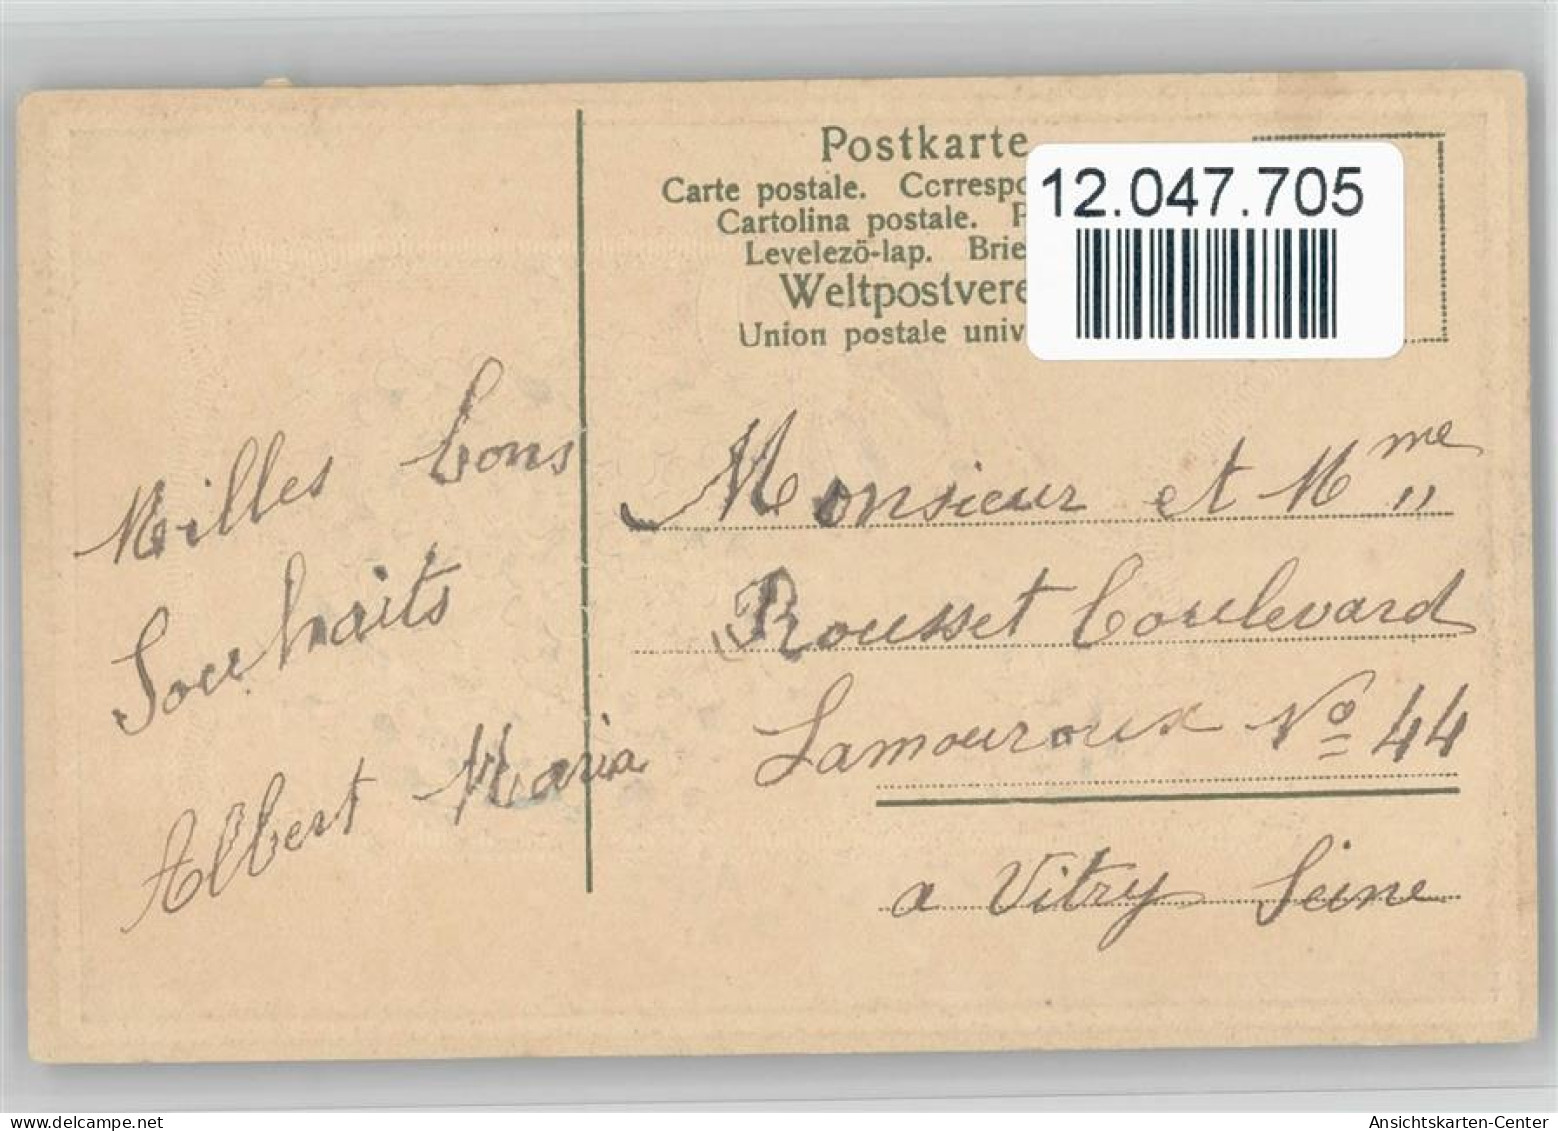 Postkarte
Carte postale. Correspo
Cartolina postale. P
Levelezö-lap. Brie
Weltpostvere
Union postale univ
12.047.705
Milles bons
Souhaits
Albert Maria
Monsieur et Mme
Rousset Boulevard
Lamouroux No 44
a Vitry Seine
www.delcampe.net
Ansichtskarten-Center